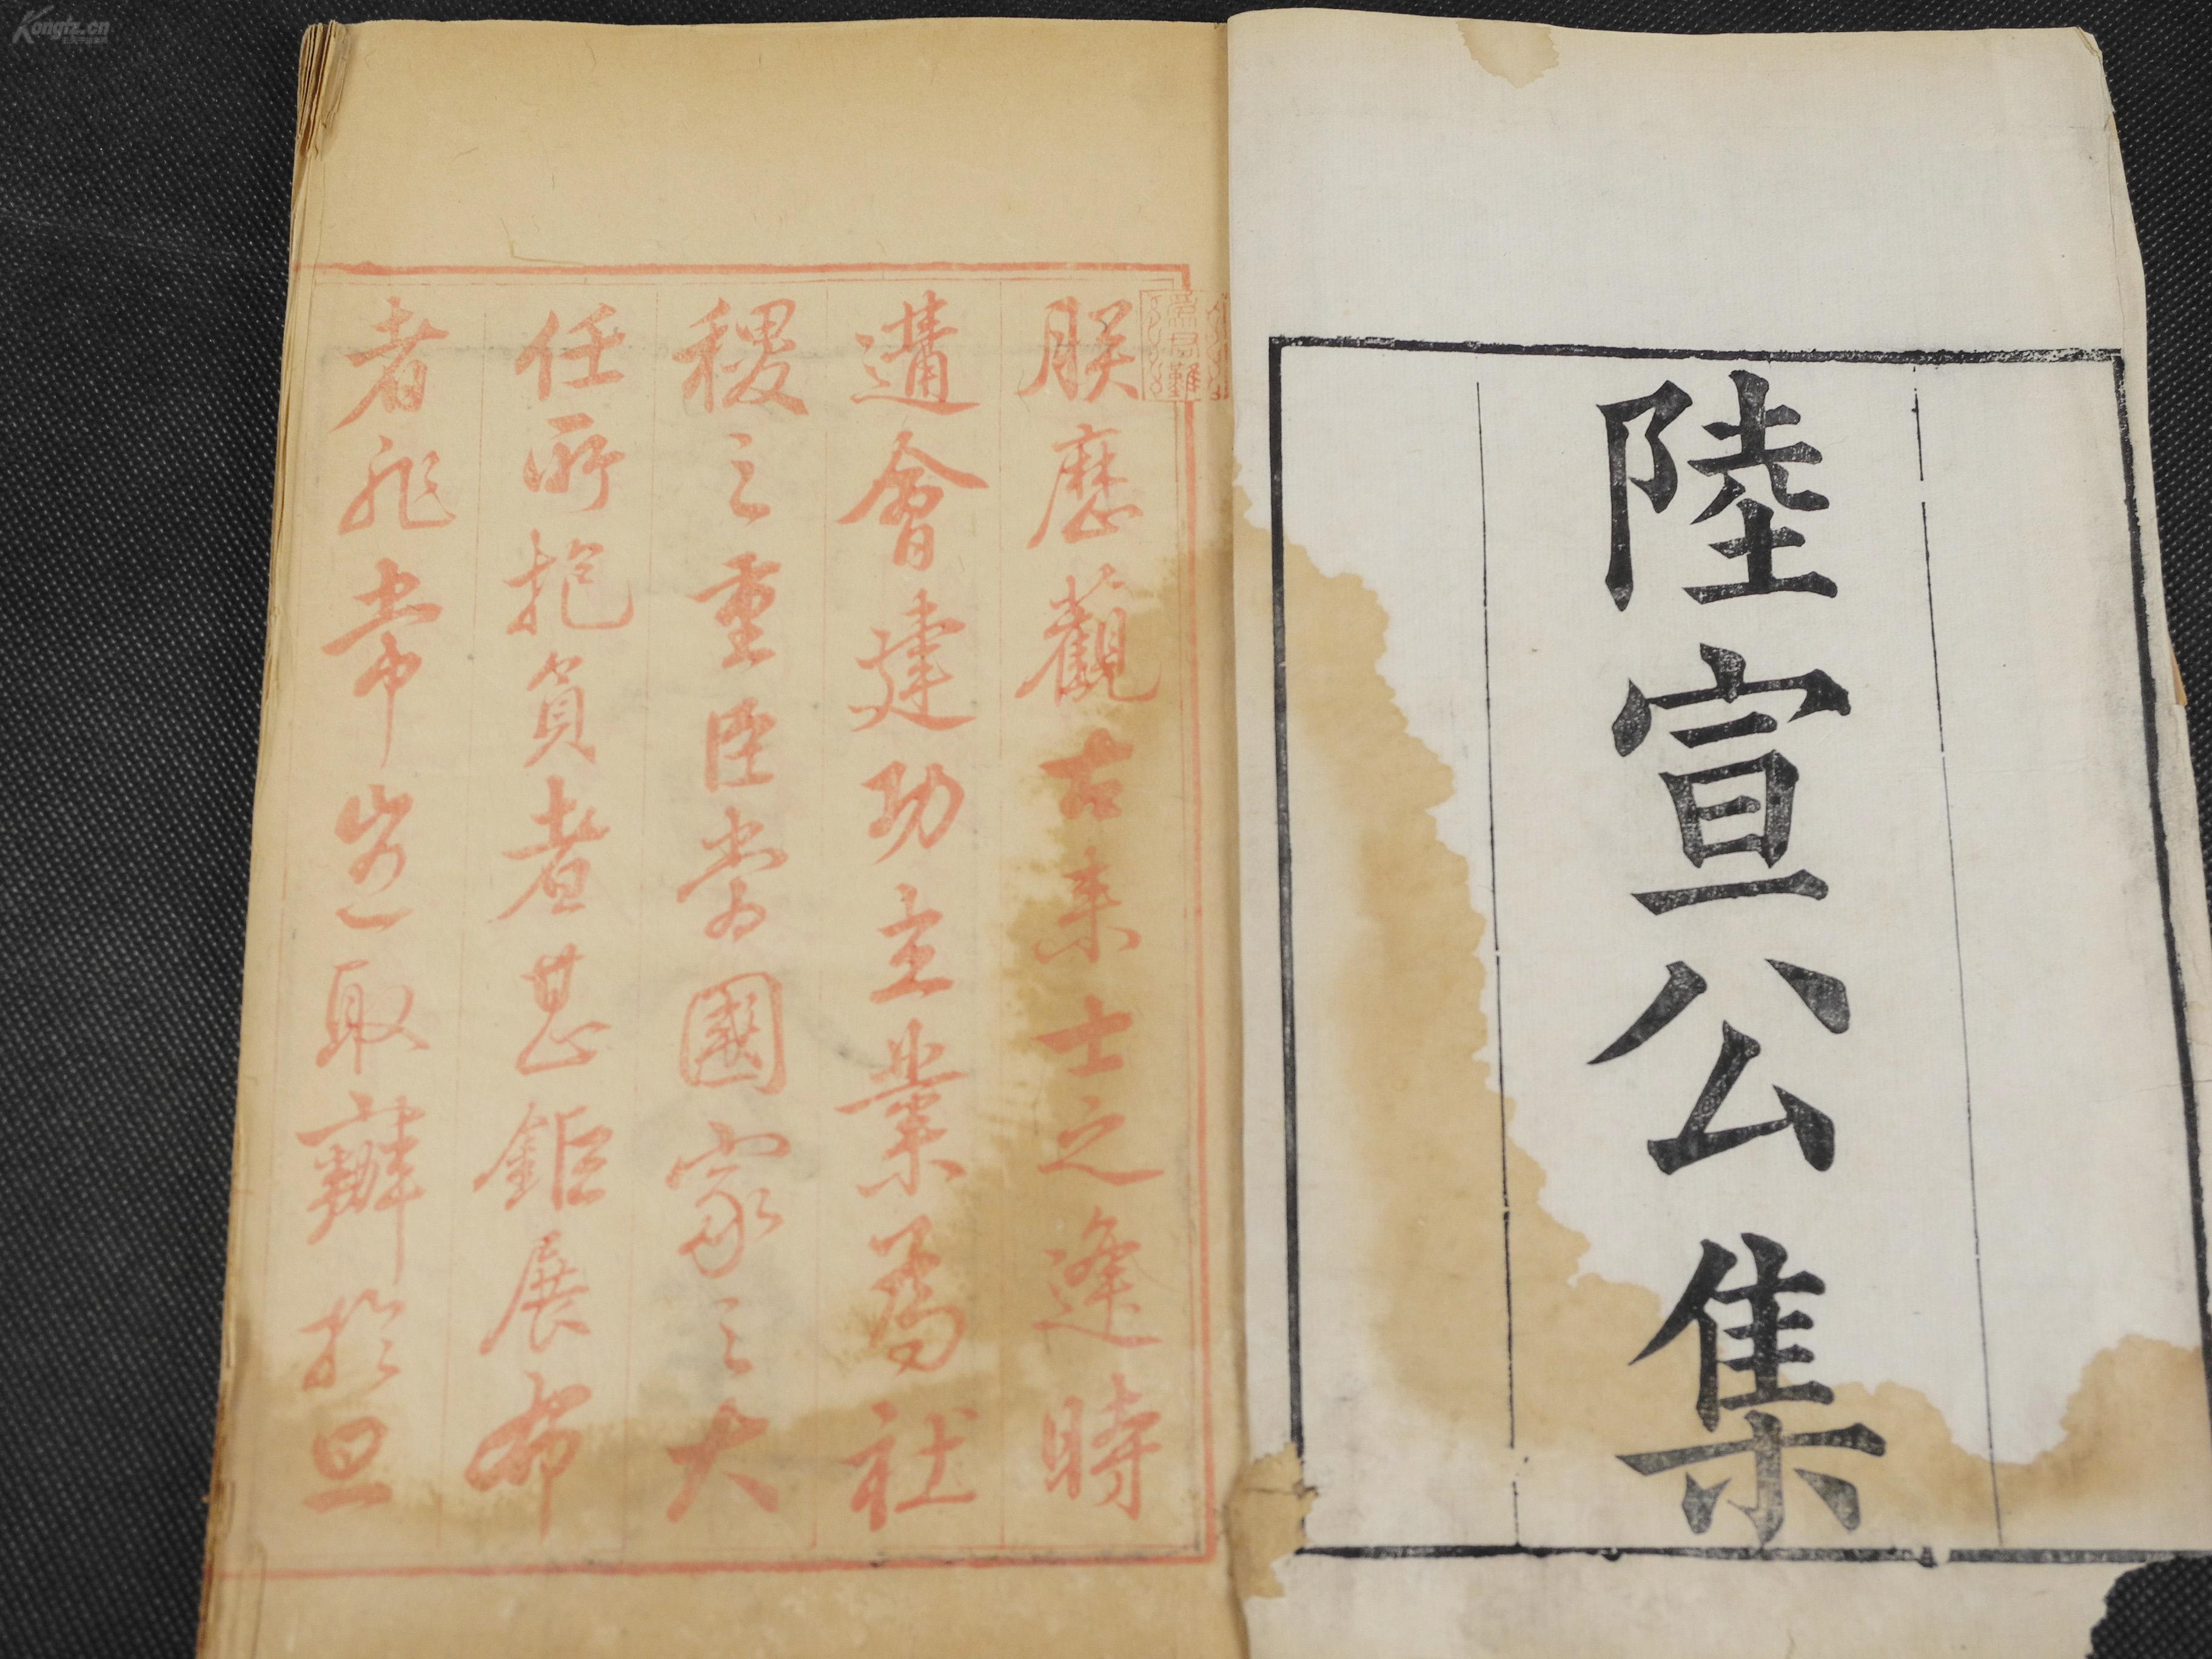 陸宣公集
朕歷觀古來士之逢時
遘會建功立業為社
稷之重臣當國家之大
任所抱負者甚鉅展布
者非常豈取辦於旦
為君難
Kongfz.cn